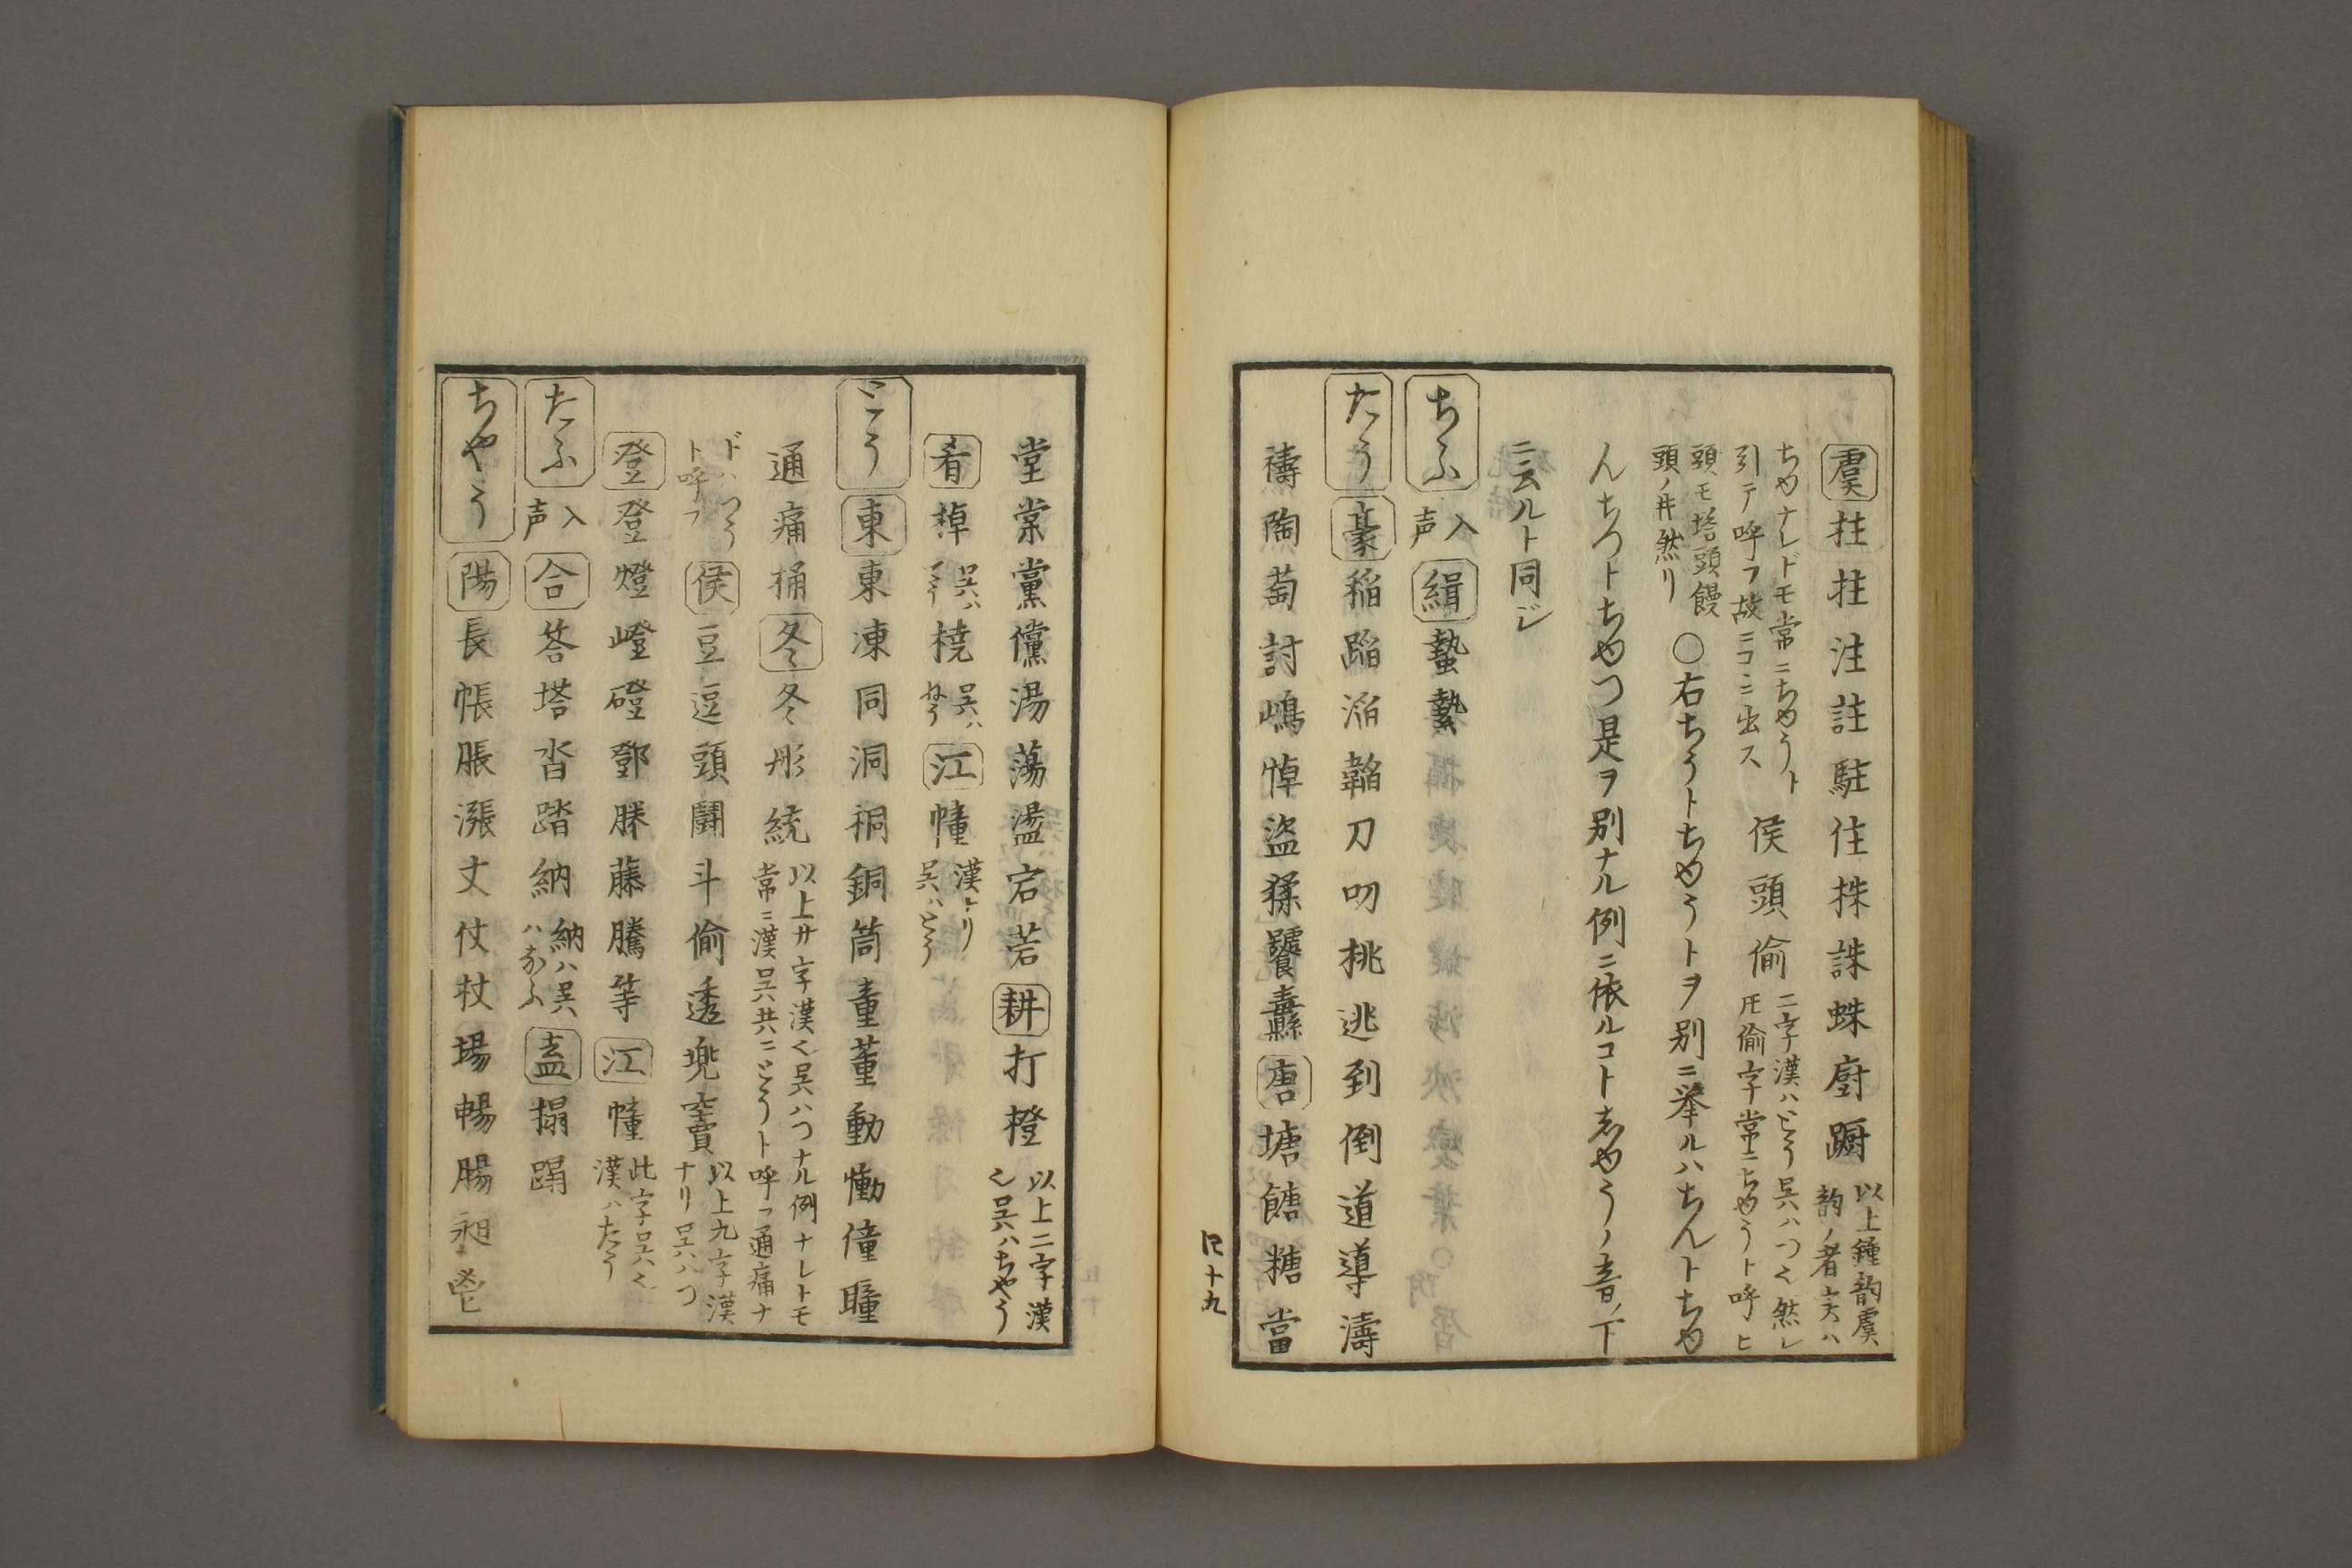 虞拄拄注註駐住株誅蛛厨蹰以上鍾韵虞
韵ノ者実ハ
ちゆナレドモ常ニちゆうト
引テ呼フ故ニコヽニ出ス
侯頭偷二字漢ハとう呉ハつく然レ
𪜈偷字常ニちゆうト呼ヒ
頭モ塔頭饅
頭ノ𪜈然リ
〇右ちうトちゆうトヲ別ニ挙ルハちんトちゆ
んちつトちゆつ是ヲ別ナル例ニ依ルコトしゆうノ音ノ下
ニ云ルト同ジ
ちふ入声緝蟄縶
たう豪稲蹈滔韜刀叨桃逃到倒道導濤
禱陶萄討嶋悼盜猱饕纛唐塘餹糖當
四十九
堂棠黨儻湯蕩盪宕菪耕打橙以上二字漢
く呉ハちやう
肴棹呉ハ
てう
橈呉ハ
ねう
江幢漢ナリ
呉ハとう
とう東東凍同洞桐銅筒童董動慟僮瞳
通痛桶冬冬彤統以上廿字漢く呉ハつナル例ナレトモ
常ニ漢呉共ニとうト呼フ通痛ナ
ドハつう
ト呼フ
侯豆逗頭鬪斗偷透兜竇以上九字漢
ナリ呉ハつ
登登燈嶝磴鄧滕藤騰等江幢此字呉ハく
漢ハたう
たふ入声合答塔沓踏納納ハ呉
ハなふ
盍搨蹋
ちやう陽長帳脹漲丈仗杖場暢腸昶鬯